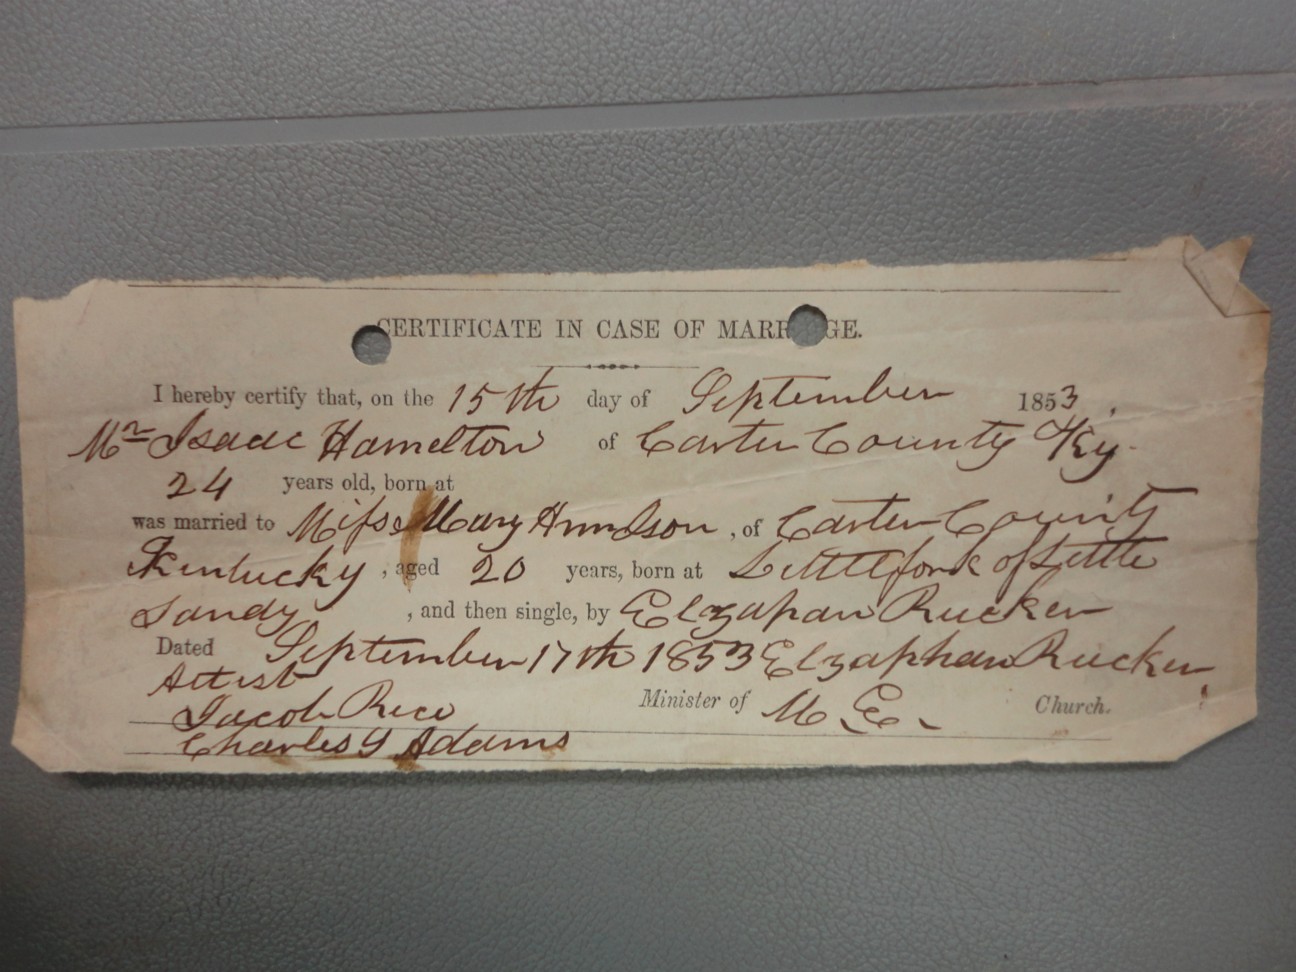 CERTIFICATE IN CASE OF MARRGE.
I hereby certify that, on the 15th day of September 1853,
Mr Isaac Hamelton of Carter County Ky.
24 years old, born at
was married to Miss Mary , of Carter County
Kentucky , aged 20 years, born at Littlefork of Little
Sandy , and then single, by Elzapan Rucker
Dated September 17th 1853 Elzaphan Rucker
Attist
Jacob Rice Minister of M. E. Church.
Charles Y Adams